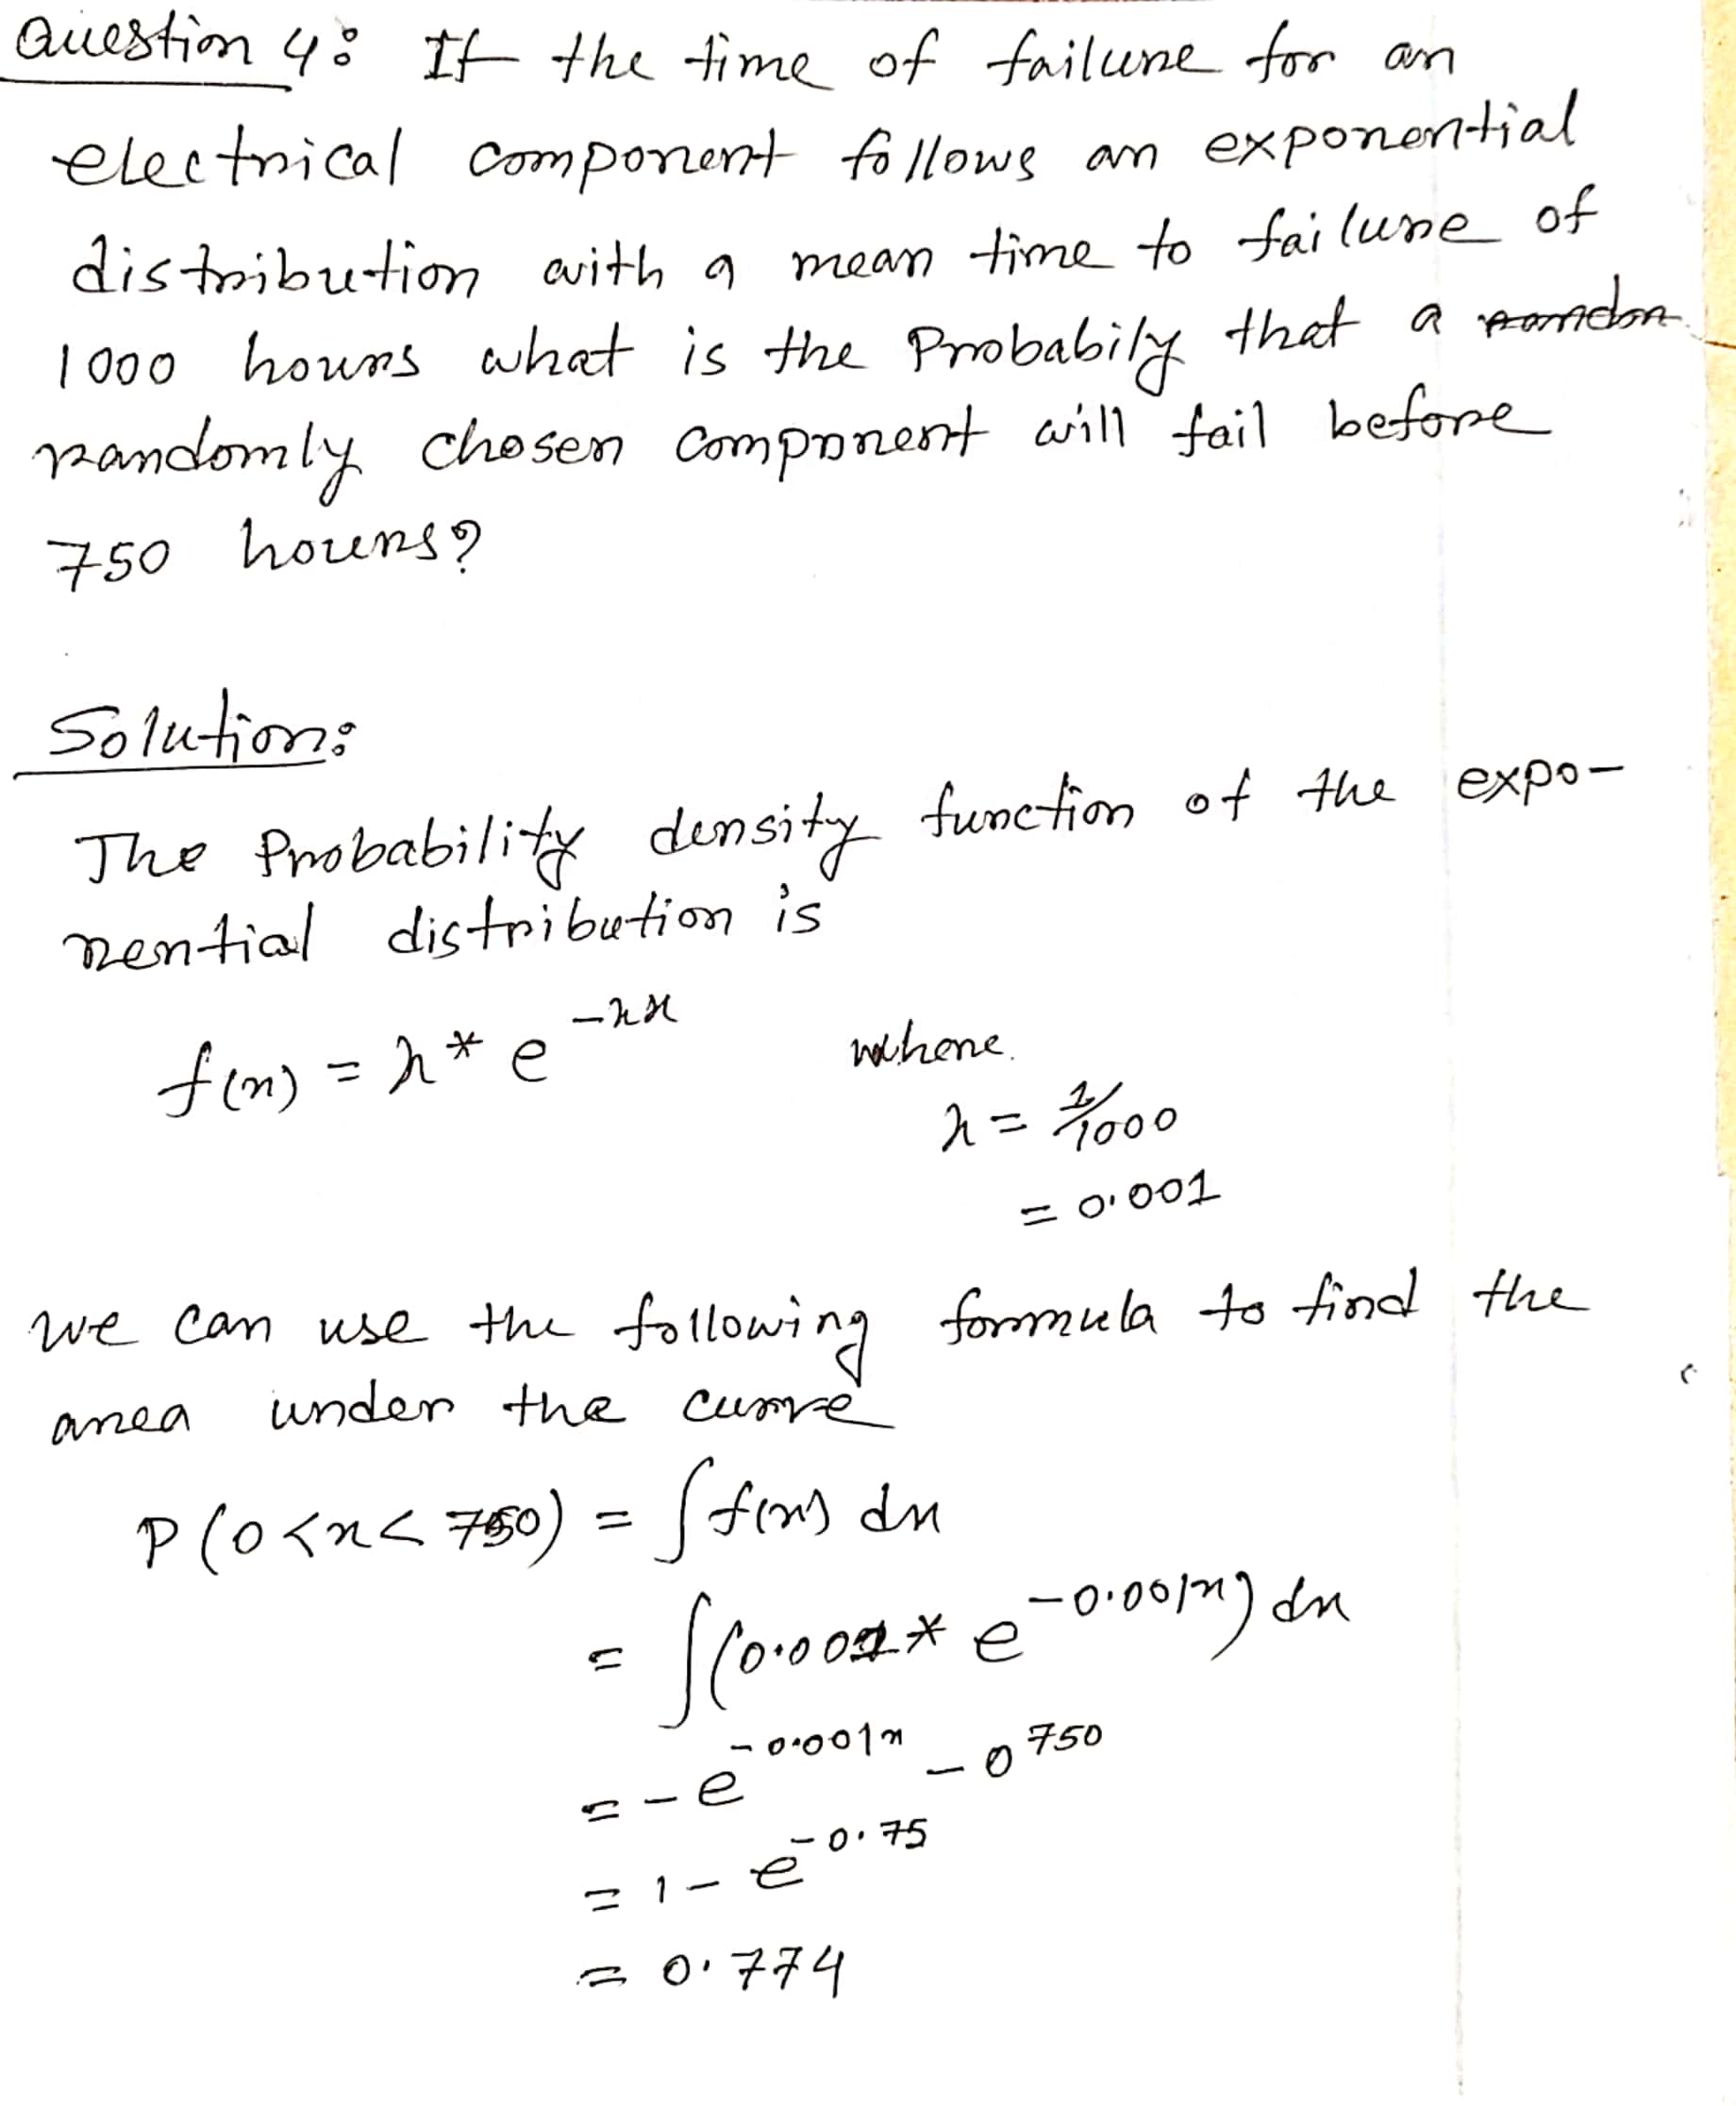 Question 4: If the time of failure for an
electrical component follows an exponential
distribution with a mean time to failure of
1000 hours what is the Probabily that a random
randomly chosen component will fail before
750 hours?
Solution:
The Probability density function of the expo-
nential distribution is
f(x) = λ * e^{-λx} where
λ = 1/1000
= 0.001
we can use the following formula to find the
area under the curve
P(0<x<750) = ∫f(x) dx
= ∫(0.001 * e^{-0.001x}) dx
= -e^{-0.001x} - 0^{750}
= 1 - e^{-0.75}
= 0.774